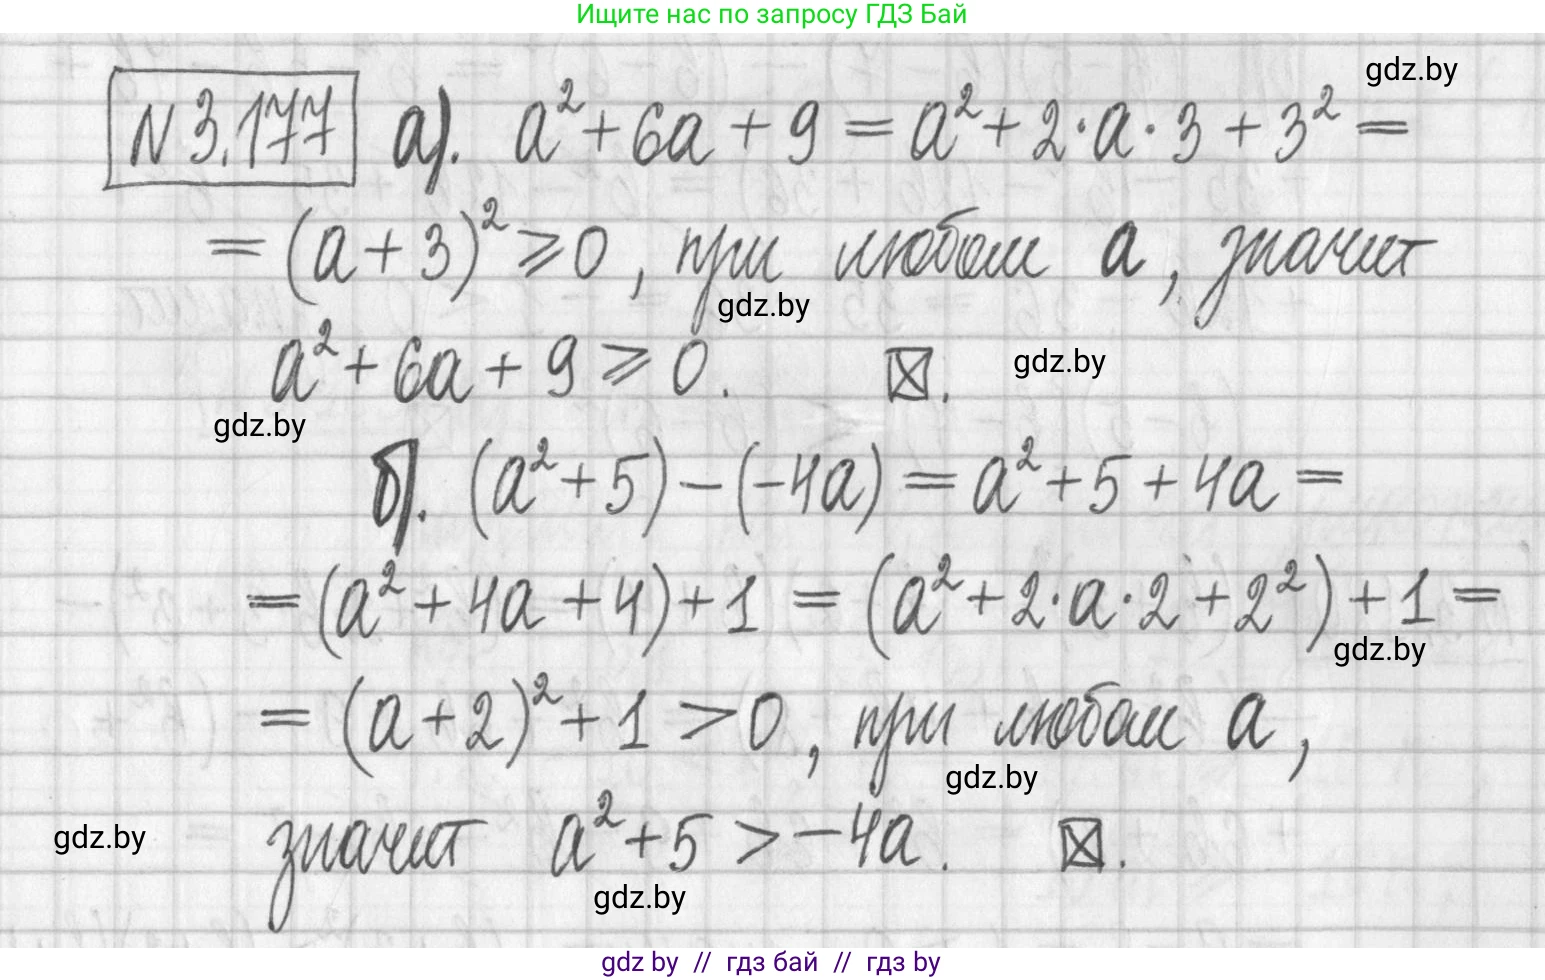 Ищите нас по запросу ГДЗ Бай
gdz.by
N 3.177 а). a² + 6a + 9 = a² + 2·a·3 + 3² =
= (a + 3)² ⩾ 0, при любом a, значит
gdz.by
a² + 6a + 9 ⩾ 0. ☒.
gdz.by
gdz.by
б). (a² + 5) − (−4a) = a² + 5 + 4a =
= (a² + 4a + 4) + 1 = (a² + 2·a·2 + 2²) + 1 =
gdz.by
= (a + 2)² + 1 > 0, при любом a,
gdz.by
gdz.by
значит a² + 5 > −4a. ☒.
gdz.by
gdz by // гдз бай // гдз by